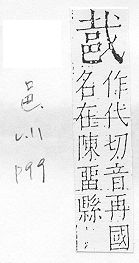 作代切音再國
名在陳畱縣
邑
v.11
p99